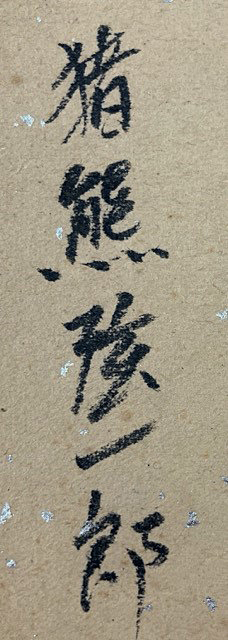 猪熊弦一郎